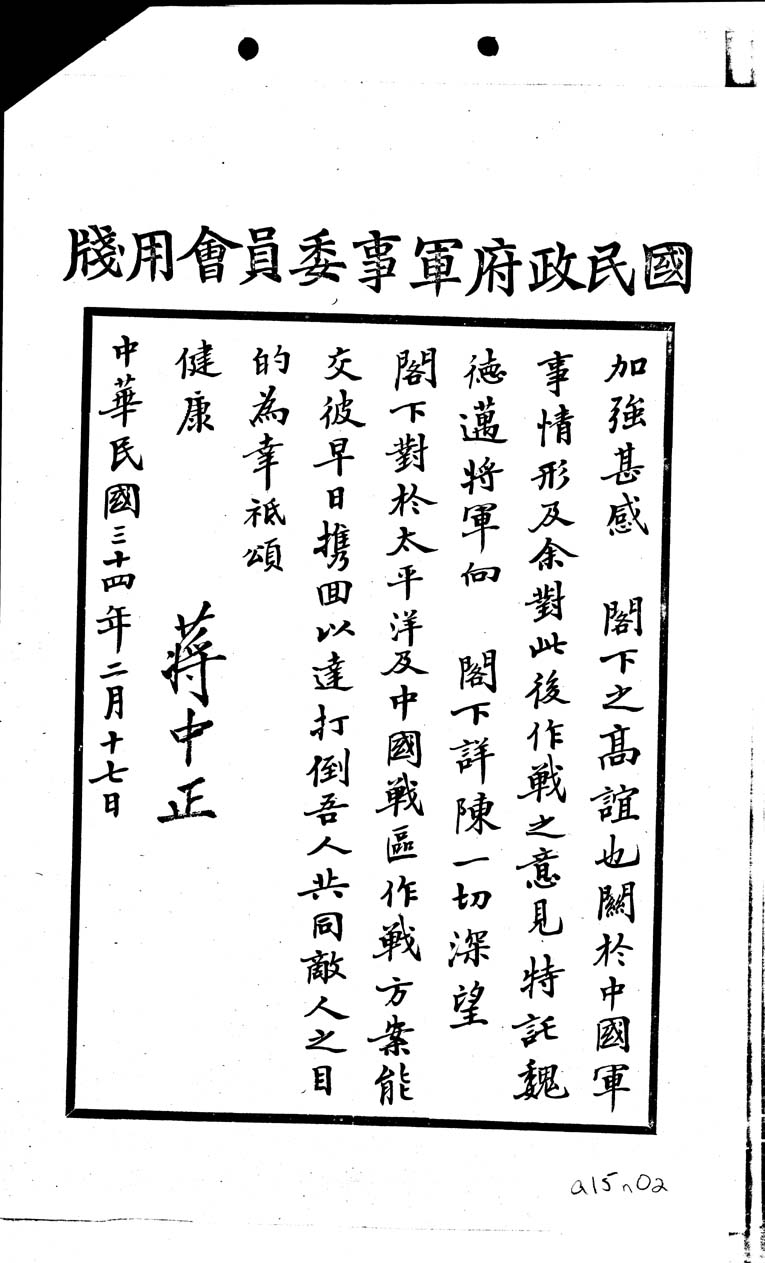 國民政府軍事委員會用牋
加強甚感　閣下之髙誼也關於中國軍
事情形及余對此後作戰之意見特託魏
德邁將軍向　閣下詳陳一切深望
閣下對於太平洋及中國戰區作戰方案能
交彼早日携回以達打倒吾人共同敵人之目
的為幸祗頌
健康
蔣中正
中華民國三十四年二月十七日
a15n02